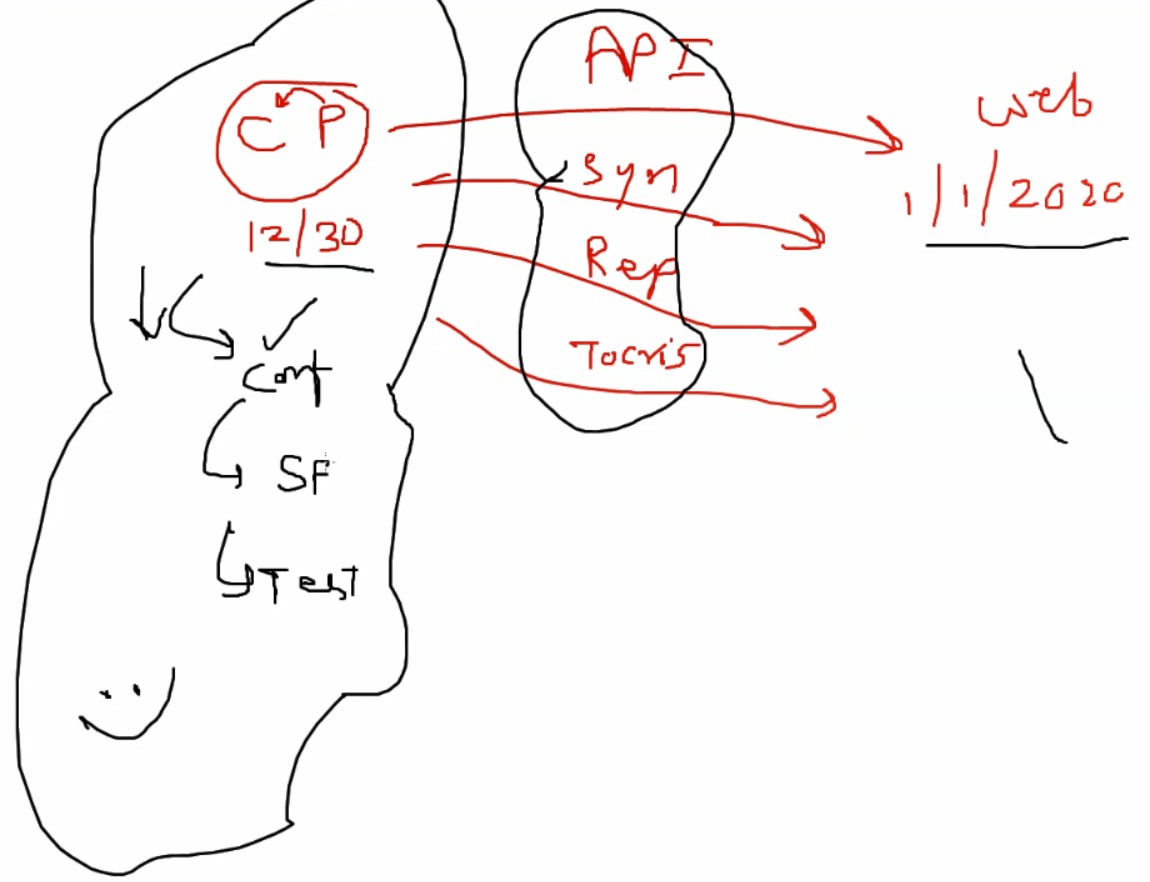 C P
12/30
Conf
SF
Test
API
Syn
Rep
Tocris
web
1/1/2020